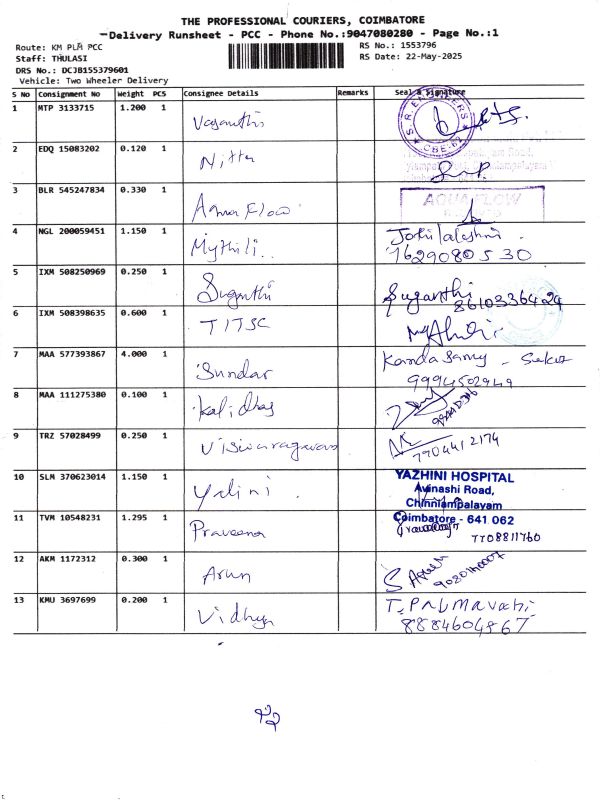 THE PROFESSIONAL COURIERS, COIMBATORE
Delivery Runsheet - PCC - Phone No.:9047080280 - Page No.:1
Route: KM PLM PCC
RS No.: 1553796
Staff: THULASI
RS Date: 22-May-2025
DRS No.: DCJB155379601
Vehicle: Two Wheeler Delivery
S No Consignment No Weight PCS Consignee Details Remarks Seal & Signature
1 MTP 3133715 1.200 1 Vasanthi
S.R. ENGINEERS CBE-62
2 EDQ 15083202 0.120 1 Nitta
3 BLR 545247834 0.330 1 Aqua Flow
AQUAFLOW
4 NGL 200059451 1.150 1 Mythili
1629080530
5 IXM 508250969 0.250 1 Suganthi Suganthi
8610336424
6 IXM 508398635 0.600 1 TITSC
7 MAA 577393867 4.000 1 Sundar Kandasamy
9994502949
8 MAA 111275380 0.100 1 Kalidhas
9 TRZ 57028499 0.250 1 Viswaragavan
7704412174
10 SLM 370623014 1.150 1 Yalini
YAZHINI HOSPITAL
Avinashi Road,
Chinniampalayam
Coimbatore - 641 062
11 TVM 10548231 1.295 1 Praveena
7708811760
12 AKM 1172312 0.300 1 Arun
13 KMU 3697699 0.200 1 Vidhya
8884604867